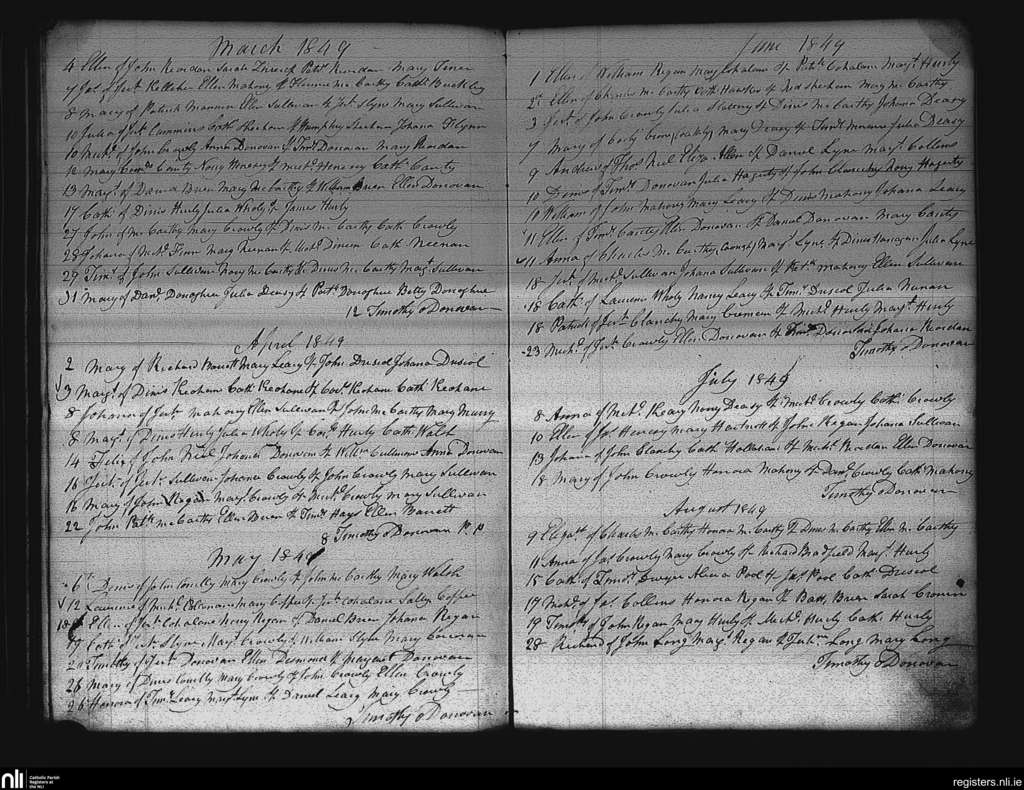 March 1849
4 Ellen of John Reordan Sarah Patk Reordan Mary
7 of Kelleher Ellen Mahony Mc Carthy Cath Buckley
8 Mary of Patrick Mannin Ellen Sullivan Sp Jer. Slyne Mary Sullivan
10 Julia of Jer. Cummins Cath Sheehan Sp Humphry Sheehan Johana Flynn
10 Mich. of John Crowly Anna Donovan Sp Timy Donovan Mary Riordan
12 Mary Canty Nony Sp Mich. Cath Canty
13 Margt. of Brien Mary Mc Carthy Sp William Brien Ellen Donovan
17 Cath of Dinis Hurly Julia Wholy Sp James Hurly
27 John of Mc Carthy Mary Crowly Sp Dinis Mc Carthy Cath Crowly
29 Johana of Mich. Finn Mary Keenan Sp Mich. Dineen Cath Neenan
29 Tim. of John Sullivan Mary Mc Carthy Sp Dinis Mc Carthy Margt. Sullivan
31 Mary of Danl. Donoghue Julia Deasy Sp Patk Donoghue Betty Donoghue
12 Timothy O Donovan
April 1849
2 Mary of Richard Barrett Mary Leary Sp John Driscol Johana Driscol
3 Margt. of Dinis Keohane Cath Keohane Sp Keohane Cath Keohane
8 Johana of Jer. Mahony Ellen Sullivan Sp John Mc Carthy Mary Murry
8 Margt. of Dinis Hurly Julia Wholy Sp Hurly Cath Walsh
14 Felix of John Neil Johana Donovan Sp Willm Cullinane Anna Donovan
16 Jer. of Jer. Sullivan Johana Crowly Sp John Crowly Mary Sullivan
16 Mary of John Regan Margt. Crowly Sp Mich. Crowly Mary Sullivan
22 John Patk Mc Carthy Ellen Brien Sp Timy Hays Ellen Barrett
8 Timothy O Donovan P.P
May 1849
6 Dinis of John Conelly Mary Crowly Sp John Mc Carthy Mary Walsh
12 Lawrence of Mich. Mary Coppers Sp Jer. Cohalane Sally Copper
18 Ellen of Jer. Cohalane Nony Regan Sp Daniel Brien Johana Regan
19 Cath of Jer. Slyne Margt. Crowly Sp William Slyne Mary
20 Timothy of Jer. Donovan Ellen Desmond Sp Margaret Donovan
26 Mary of Dinis Conelly Mary Crowly Sp John Crowly Ellen Crowly
26 Honora of Timy Leary Margt. Lyne Sp Daniel Leary Mary Crowly
Timothy O Donovan
June 1849
1 Ellen of William Regan Mary Cohalane Sp Patk Cohalane Margt. Hurly
2 Ellen of Charles Mc Carthy Cath Hawkes Sp Ned Sheehan Mary Mc Carthy
3 Jer. of John Crowly Julia Slattery Sp Dinis Mc Carthy Johana Deasy
7 Mary of Mary Deasy Sp Timy Julia Deasy
9 Andrew of Thos Neil Eliza Allen Sp Daniel Lyne Margt. Collins
10 Dinis of Timy Donovan Julia Hagerty Sp John Clanchy Nony Hagerty
11 William of John Mahony Mary Leary Sp Dinis Mahony Johana Leary
11 Ellen of Timy Canty Ellen Donovan Sp Daniel Donovan Mary Canty
11 Anna of Charles Mc Carthy Margt. Lyne Sp Dinis Julia Lyne
18 Jer. of Mich. Sullivan Johana Sullivan Sp Patk Mahony Ellen Sullivan
18 Cath. of Lawrence Wholy Nancy Leary Sp Timy Driscol Julia Nunan
18 Patrick of Jer. Clanchy Mary Cremeen Sp Mich. Hurly Margt. Hurly
23 Mich. of Jer. Crowly Ellen Donovan Sp Donovan Johana Reordan
Timothy O Donovan
July 1849
8 Anna of Mich. Nony Deasy Sp Mich. Crowly Cath. Crowly
10 Ellen of Jas. Mary Hartnett Sp John Regan Johana Sullivan
13 Johana of John Clanchy Cath Sp Mich. Riordan Ellen Donovan
18 Mary of John Crowly Honora Mahony Sp Danl. Crowly Cath Mahony
Timothy O Donovan
August 1849
9 Elizat. of Charles Mc Carthy Honora Mc Carthy Sp Dinis Mc Carthy Ellen Mc Carthy
11 Anna of Jas Crowly Mary Crowly Sp Richard Bradfield Margt. Hurly
15 Cath. of Dwyer Alicia Pool Sp Jas Pool Cath. Driscol
17 Mich. of Jas. Collins Honora Regan Sp Batt. Brien Sarah Cronin
19 Timothy of John Regan Mary Hurly Sp Mich. Hurly Cath. Hurly
28 Richard of John Long Margt. Regan Sp Long Mary Long
Timothy O Donovan
nli
Catholic Parish
Registers at
the NLI
registers.nli.ie